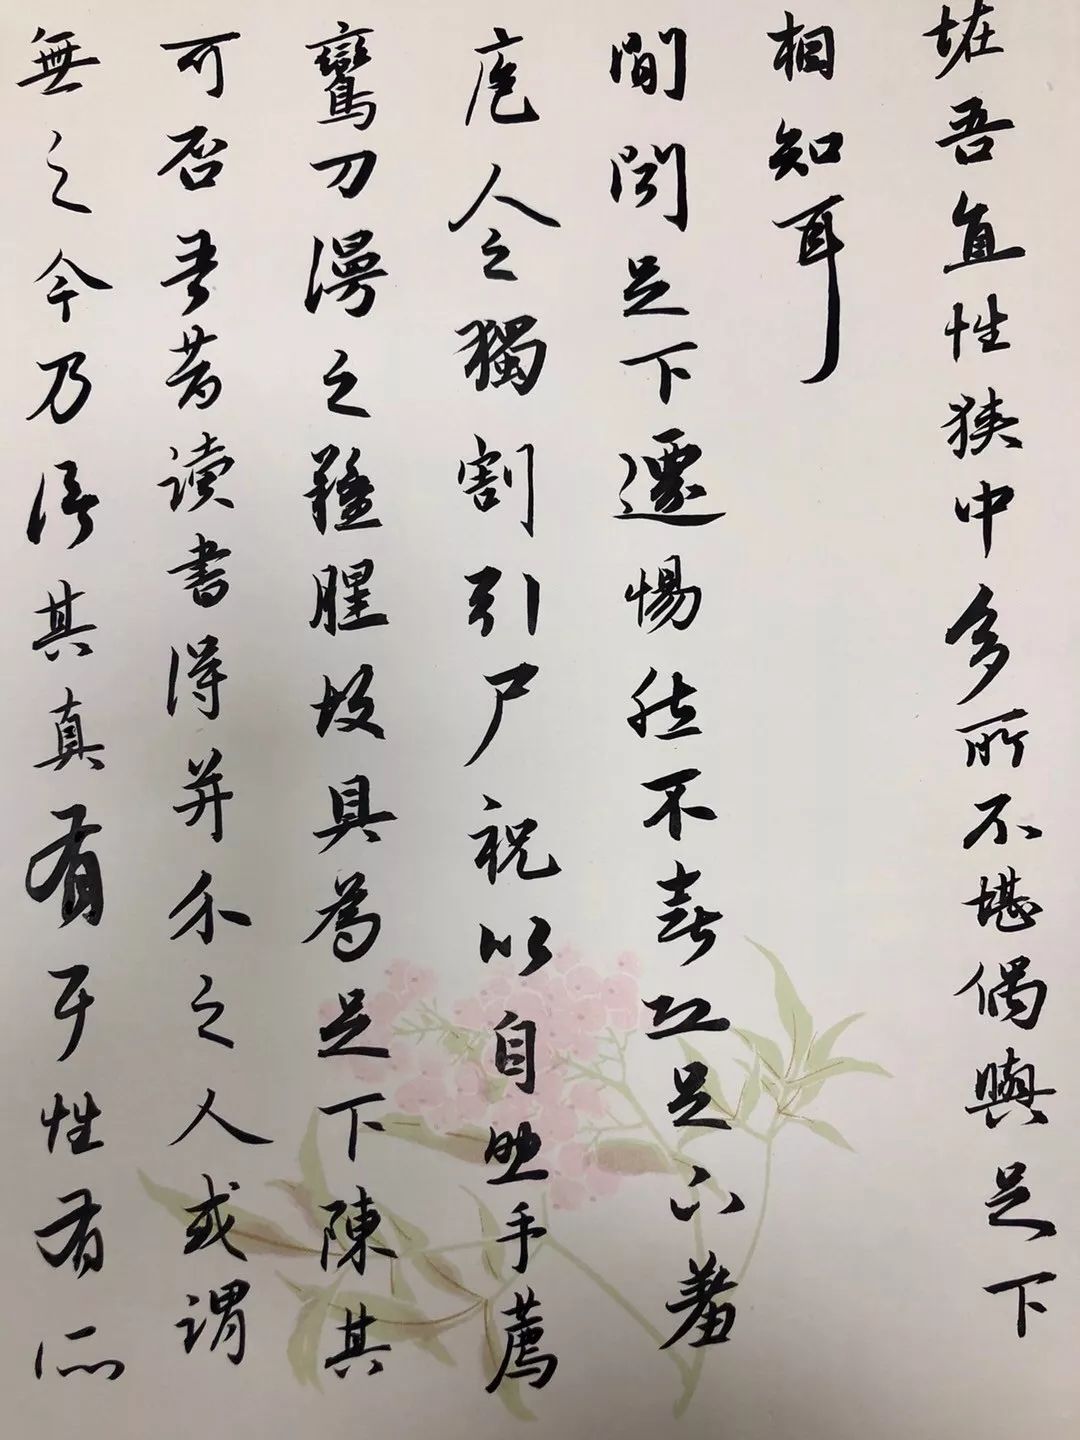 㙒吾直性狭中多所不堪偶與足下
相知耳
間聞足下遷惕然不喜恐足下羞
庖人之獨割引尸祝以自助手薦
鸞刀漫之羶腥故具為足下陳其
可否吾昔读書得并介之人或谓
無之今乃信其真有耳性有所